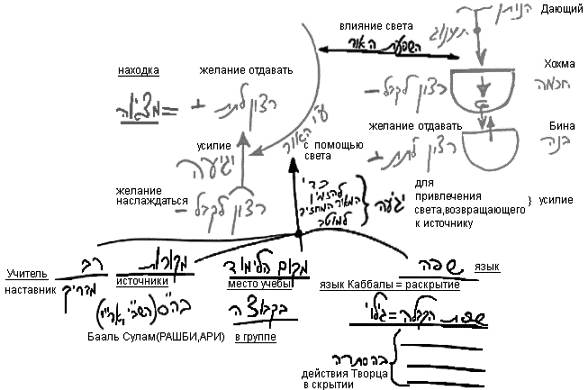 Дающий
הנותן
תענוג
влияние света
השפעת האור
Хохма
חכמה
находка
желание отдавать
מציאה =
רצון לתת +
רצון לקבל –
желание отдавать
Бина
בינה
רצון לתת +
ע"י האור
усилие
יגיעה
с помощью
света
желание
наслаждаться
רצון לקבל –
כדי
להזמין
המאור המחזיר
למוטב
יגיעה
для
привлечения
света,возвращающего
к источнику
} усилие
Учитель
רב
наставник
מדריך
מקורות
источники
בה"ס (רשב"י, האר"י)
Бааль Сулам(РАШБИ,АРИ)
מקום הלימוד
место учебы
בקבוצה
в группе
שפה
язык
язык Каббалы = раскрытие
שפת הקבלה = גילוי
בהסתרה
действия Творца
в скрытии